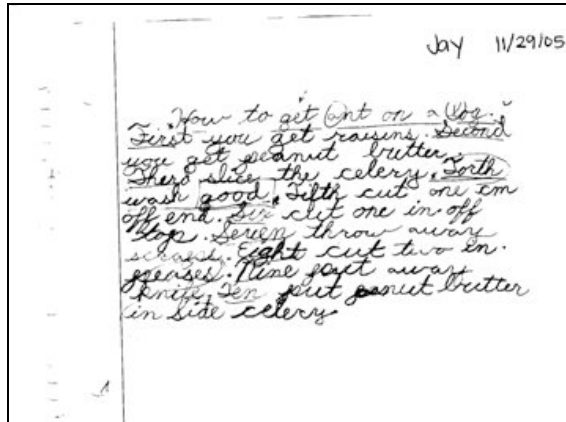 Jay 11/29/05
How to get ant on a log.
First you get raisins. Second
you get peanut butter.
Therd slice the celery. Forth
wash good. Fifth cut one cm
off end. Six cut one in off
top. Seven throw away
scraps. Eight cut two in.
peases. Nine put away
knife. Ten put penut butter
in side celery.